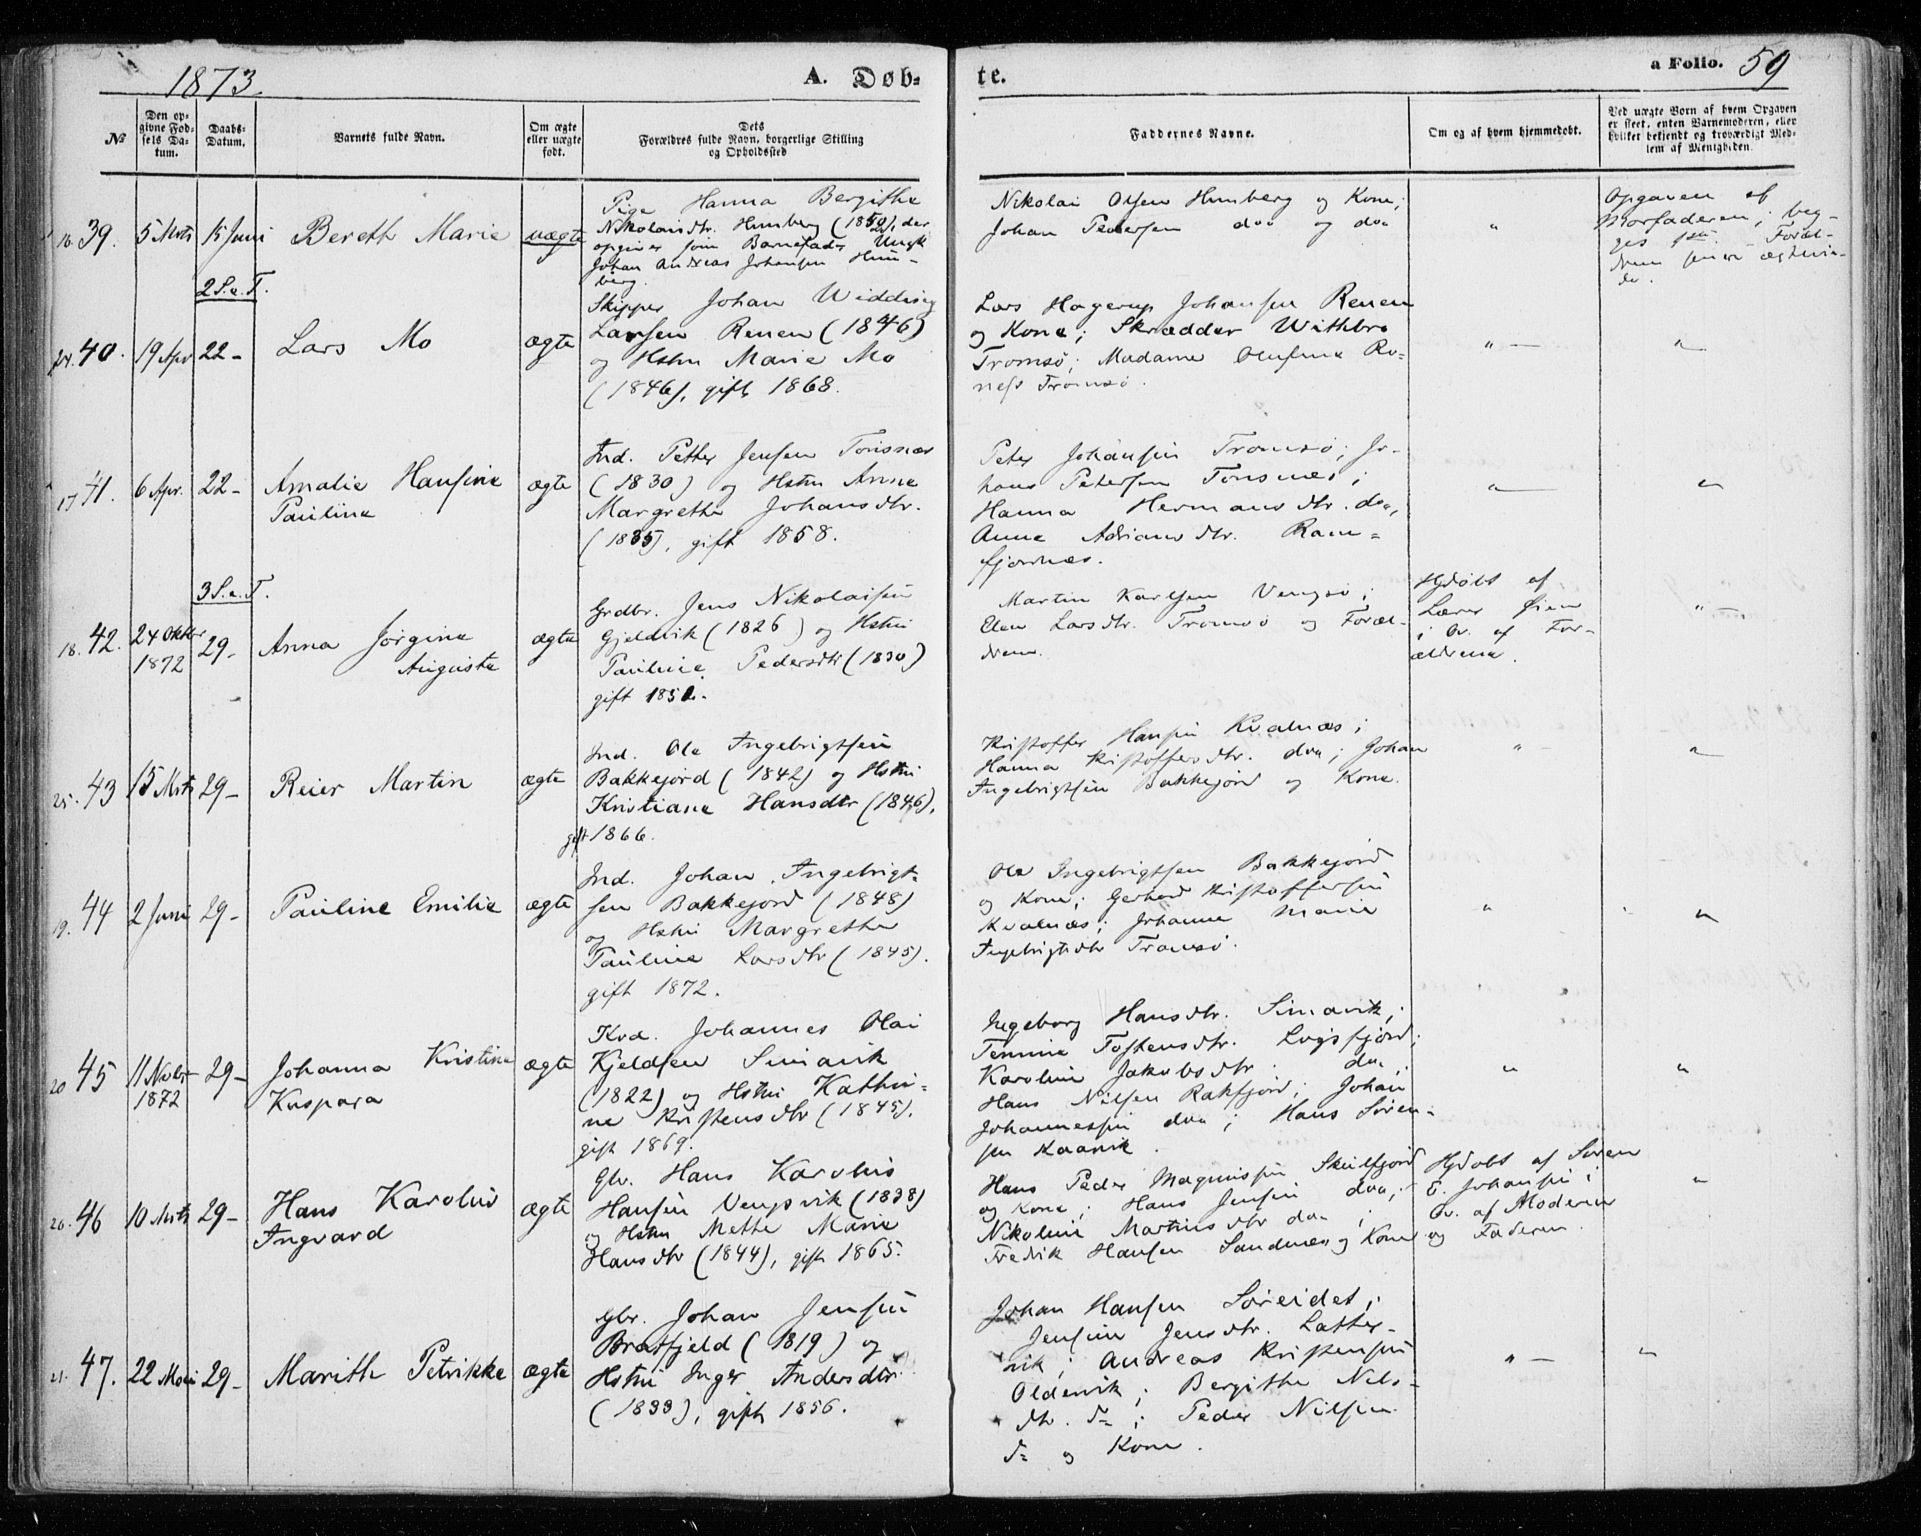 1873.
A. Døb-
te.
a Folio. 59
№
Den op-
givne Fød-
sels Da-
tum.
Daabs-
Datum.
Barnets fulde Navn.
Om ægte
eller uægte
født.
Dets
Forældres fulde Navn, borgerlige Stilling
og Opholdssted
Faddernes Navne.
Om og af hvem hjemmedøbt.
Ved uægte Børn af hvem Opgaven
er skeet, enten Barnemoderen, eller
hvilket bekjendt og troværdigt Med-
lem af Menigheden.
16. 39. 5 Mrts 15 Juni Bereth Marie uægte
Pige Hanna Bergithe
Nikolaidtr. Humberg (1850), der
opgiver som Barnefader Ungk
Johan Andreas Johansen Hum-
berg.
Nikolai Olsen Humberg og Kone;
Johan Pedersen doa og doa
"
Opgaven af
Morfaderen; beg-
ges 1ste. Foræl-
drene senere ægtevie-
de.
2 S. e. T.
24. 40. 19 Apr 22 - Lars Mo ægte
Skipper Johan Widding
Larsen Renen (1846)
og Hstru Marie Mo
(1846), gift 1868.
Lars Hagerup Johansen Renen
og Kone; Skrædder Withbro
Tromsø; Madame Olufine Ro-
ness Tromsø.
" -
"
17 41. 6 Apr. 22 - Amalie Hansine
Pauline
ægte
Ind. Petter Jensen Tonsnæs
(1830) og Hstru Anne
Margrethe Johansdtr.
(1835), gift 1858.
Peter Johansen Tromsø; Jo-
hans Petersen Tonsnes;
Hanna Hermansdtr. doa,
Anne Adriansdtr. Ram-
fjordnes.
" -
"
3 S. e. T.
18. 42. 24 Oktbr
1872
29 - Anna Jørgine
Augusta
ægte
Grdbr. Jens Nikolaisen
Gjeldvik (1826) og Hstru
Pauline Pedersdtr (1830)
gift 1852.
Martin Karlsen Vengsø;
Elen Larsdtr. Tromsø og Foræl-
drene.
Hjdøbt af
Lærer Øien
i Ov. af For-
ældrene.
" -
25. 43 15 Mrts 29 - Reier Martin ægte
Ind. Ole Ingebrigtsen
Bakkejord (1842) og Hstru
Kristiane Hansdtr (1846),
gift 1866.
Kristoffer Hansen Kvalnæs;
Hanna Kristoffersdtr. doa; Johan
Ingebrigtsen Bakkejord og Kone.
" -
"
19. 44 2 Juni 29 - Pauline Emilie ægte
Ind. Johan Ingebrigt-
sen Bakkejord (1848)
og Hstru Margrethe
Pauline Larsdtr (1845).
gift 1872.
Ole Ingebrigtsen Bakkejord
og Kone; Gerhard Kristoffersen
Kvalnæs; Johanne Marie
Ingebrigtsdtr Tromsø.
"
"
20 45 11 Novbr
1872
29 - Johanna Kristine
Kaspara
ægte
Kvd. Johannes Olai
Kjeldsen Simavik
(1822) og Hstru Kathri-
ne Kristensdtr (1845),
gift 1869.
Ingeborg Hansdtr. Simavik;
Temine Tostensdtr. Logsfjord;
Karoline Jakobsdtr. doa,
Hans Nilsen Rakfjord; Johan
Johannessen doa; Hans Søren-
sen Kaavik.
"
"
26. 46 10 Mrts 29 - Hans Karolius
Ingvard
ægte
Gbr. Hans Karolius
Hansen Vengsvik (1838)
og Hstru Mette Marie
Hansdtr (1844), gift 1865.
Hans Peder Magnussen Skulfjord
og Kone; Hans Jensen doa;
Nikoline Martinsdtr doa;
Fredrik Hansen Sandnæs og Kone
Hjdøbt af Søren
E. Johansen i
Ov. af Moderen
og Faderen
"
21. 47. 22 Mai 29 - Marith Petrikke ægte
Gbr. Johan Jensen
Bratfjeld (1819) og
Hstru Inger Andersdtr
(1833), gift 1856.
Johan Hansen Soreidet;
Jensine Jensdtr. Latter-
vik; Andreas Kristensen
Oldervik; Bergithe Nils-
dtr. do; Peder Nilsen
do og Kone.
" -
"